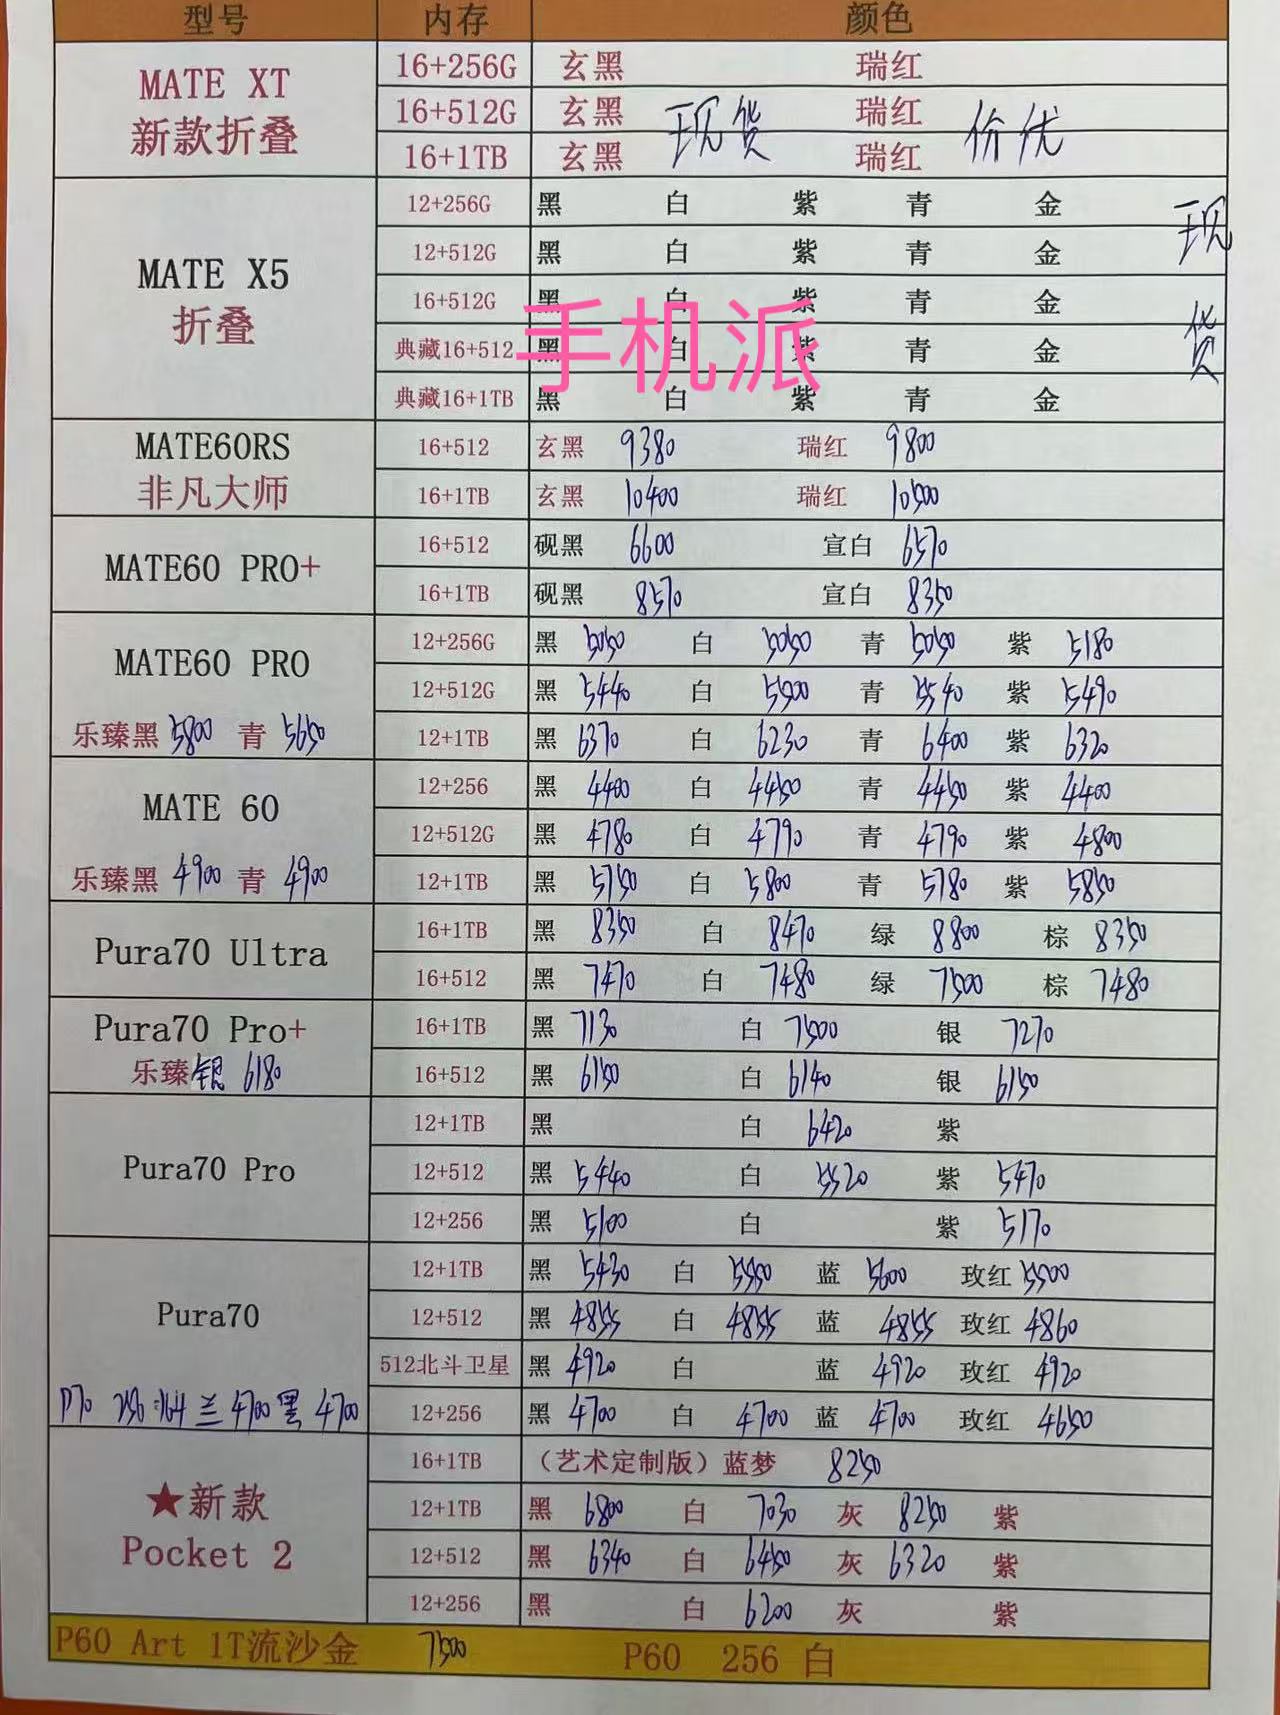 型号 内存 颜色
MATE XT 新款折叠
16+256G 玄黑 瑞红
16+512G 玄黑 瑞红
16+1TB 玄黑 瑞红
现货 价优
MATE X5 折叠
12+256G 黑 白 紫 青 金
12+512G 黑 白 紫 青 金
16+512G 黑 白 紫 青 金
典藏16+512 黑 白 紫 青 金
典藏16+1TB 黑 白 紫 青 金
现货
手机派
MATE60RS 非凡大师
16+512 玄黑 9380 瑞红 9800
16+1TB 玄黑 10400 瑞红 10500
MATE60 PRO+
16+512 砚黑 6600 宣白 6570
16+1TB 砚黑 8570 宣白 8350
MATE60 PRO
乐臻黑 5800 青 5650
12+256G 黑 5050 白 5050 青 5050 紫 5180
12+512G 黑 5440 白 5500 青 5540 紫 5490
12+1TB 黑 6370 白 6230 青 6400 紫 6320
MATE 60
乐臻黑 4900 青 4900
12+256 黑 4400 白 4450 青 4450 紫 4400
12+512G 黑 4780 白 4790 青 4790 紫 4800
12+1TB 黑 5750 白 5800 青 5780 紫 5850
Pura70 Ultra
16+1TB 黑 8350 白 8470 绿 8800 棕 8350
16+512 黑 7470 白 7480 绿 7500 棕 7480
Pura70 Pro+
乐臻银 6180
16+1TB 黑 7130 白 7500 银 7270
16+512 黑 6150 白 6140 银 6150
Pura70 Pro
12+1TB 黑 白 6420 紫
12+512 黑 5440 白 5520 紫 5470
12+256 黑 5100 白 紫 5170
Pura70
12+1TB 黑 5430 白 5550 蓝 5600 玫红 5500
12+512 黑 4855 白 4855 蓝 4855 玫红 4860
512北斗卫星 黑 4920 白 蓝 4920 玫红 4920
P70 256 兰 4700 黑 4700
12+256 黑 4700 白 4700 蓝 4700 玫红 4650
★新款 Pocket 2
16+1TB （艺术定制版）蓝梦 8250
12+1TB 黑 6800 白 7030 灰 8250 紫
12+512 黑 6340 白 6450 灰 6320 紫
12+256 黑 白 6200 灰 紫
P60 Art 1T流沙金 7500 P60 256 白